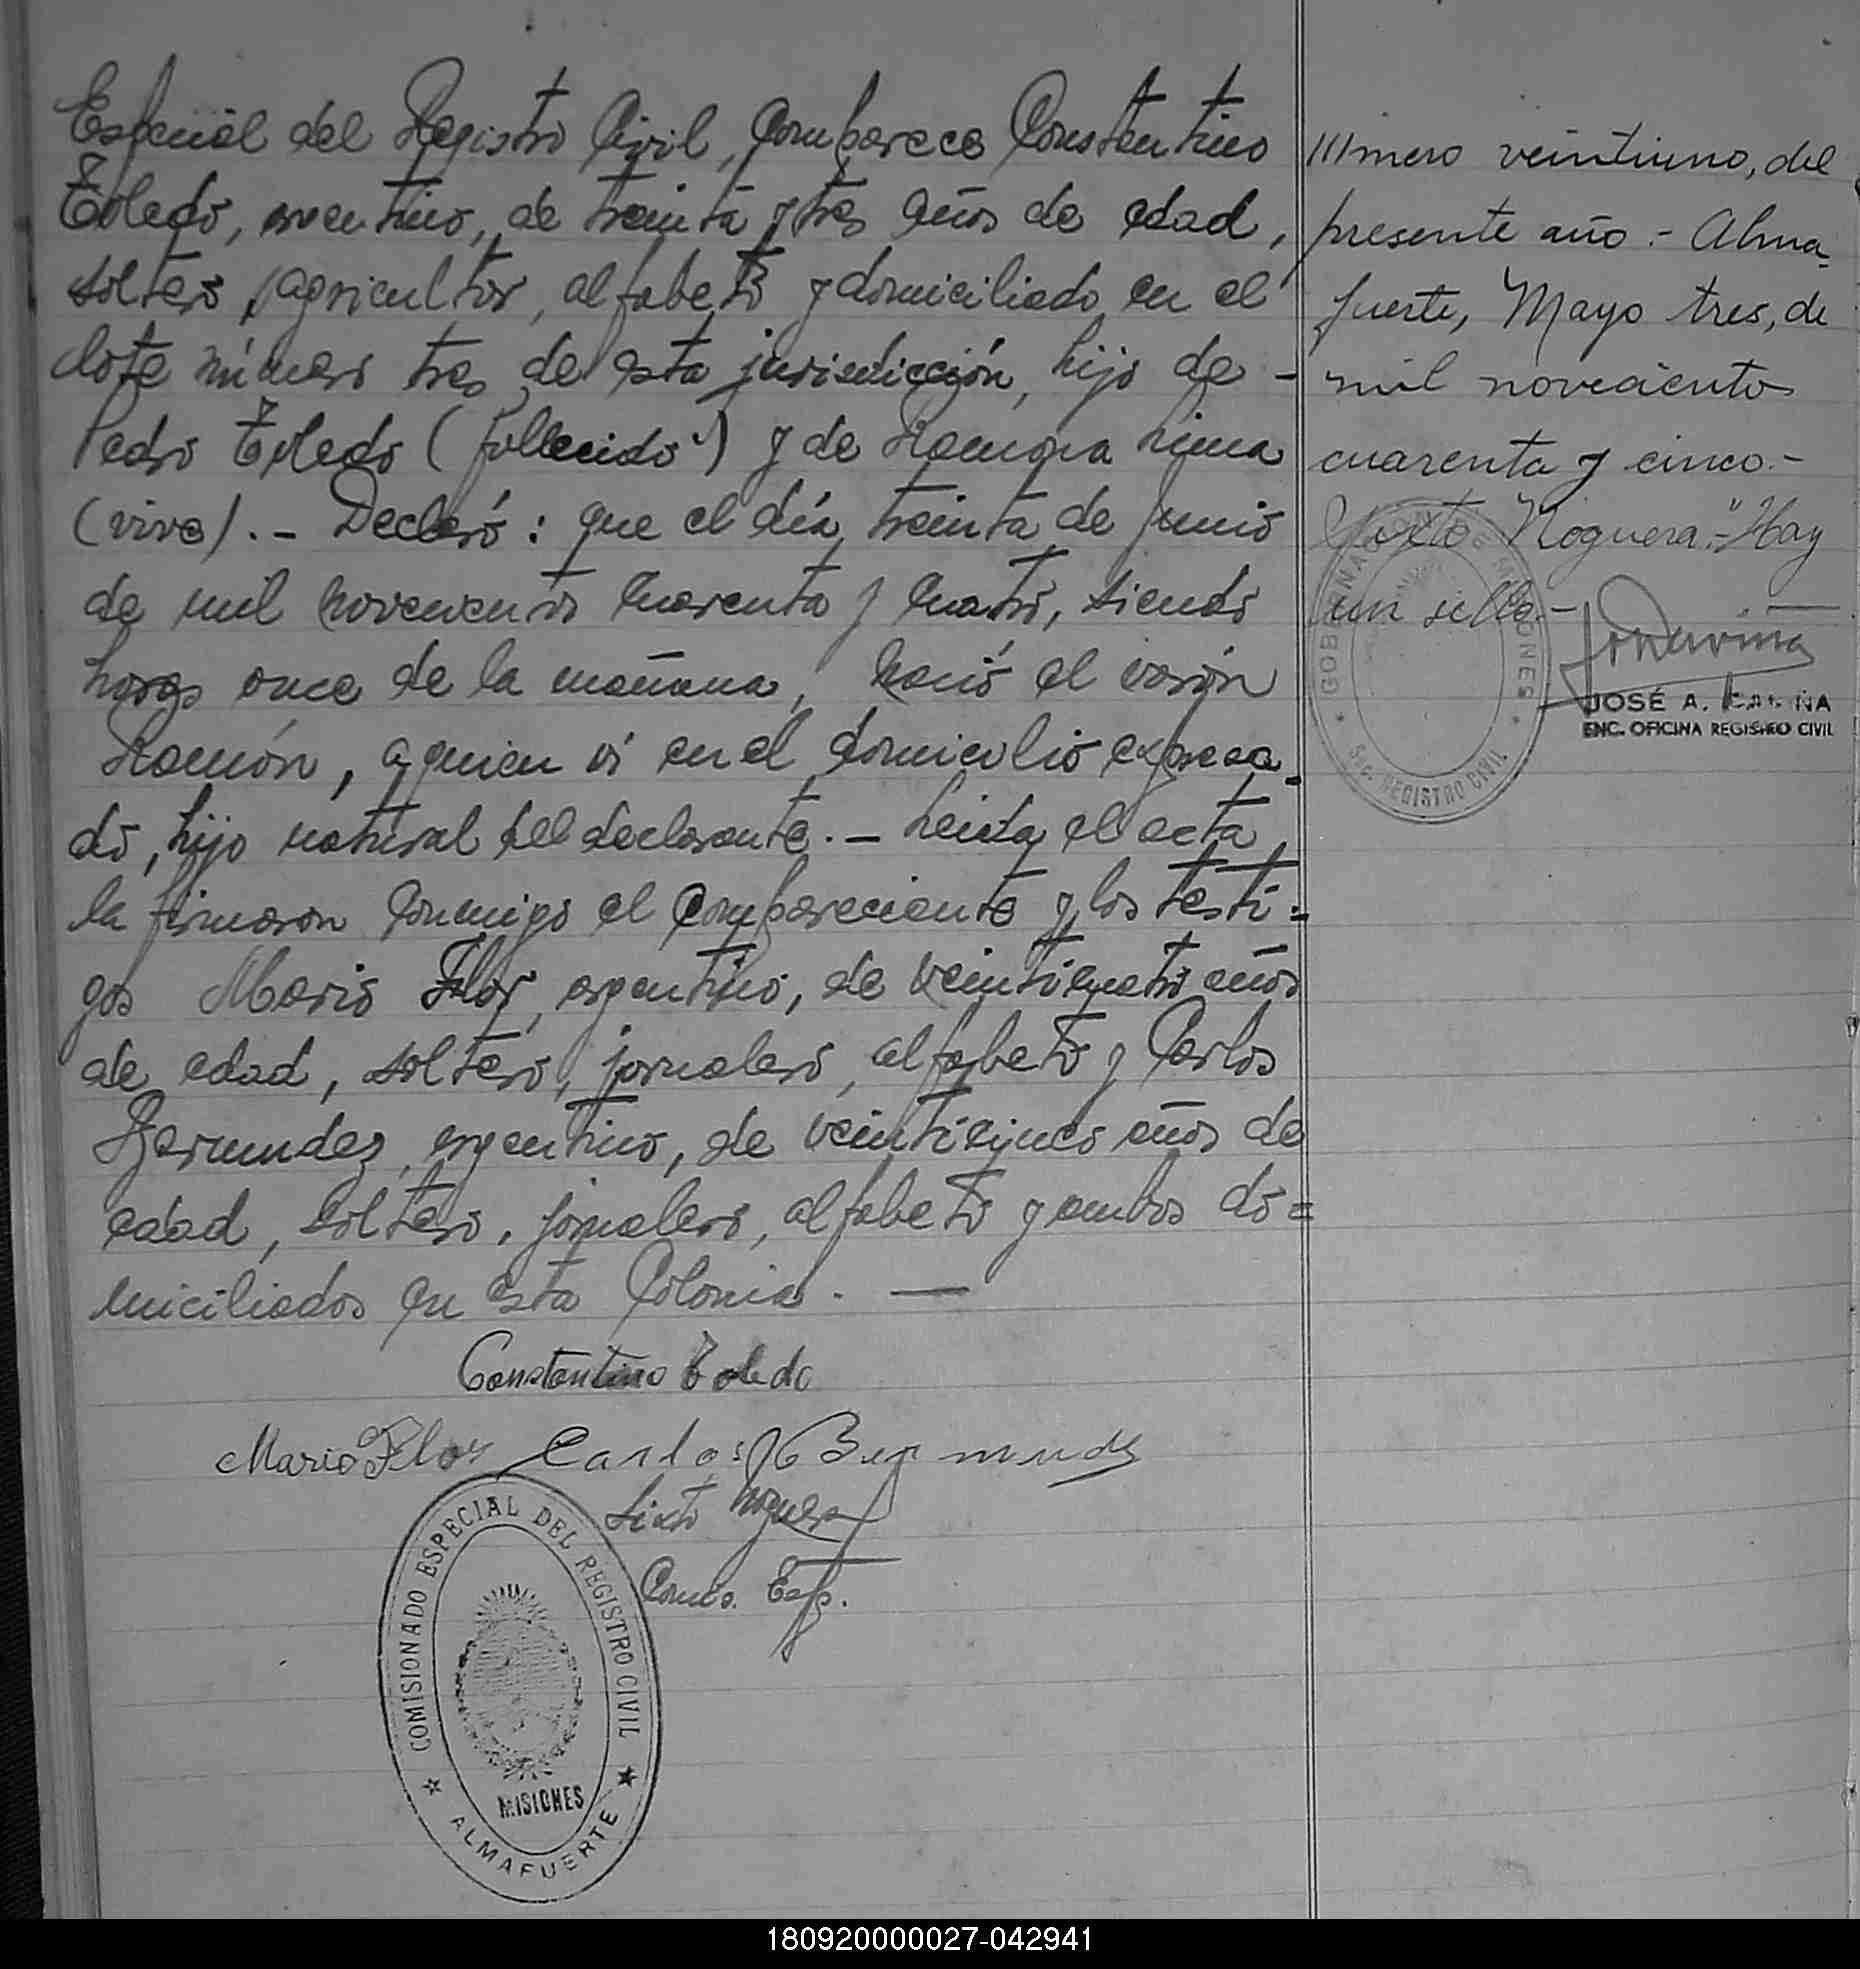 Especial del Registro Civil, Comparece Constantino
Toledo, argentino, de treinta y tres años de edad,
soltero, agricultor, alfabeto y domiciliado en el
lote número tres de esta jurisdicción, hijo de -
Pedro Toledo (fallecido) y de Ramona Lima
(vive). - Declaró: que el día treinta de junio
de mil novecientos cuarenta y cuatro, siendo
horas once de la mañana, nació el varón
Ramón, a quien vi en el domicilio expresa-
do, hijo natural del declarante. - Leída el acta,
la firmaron conmigo el compareciente y los testi=
gos Mario Flor, argentino, de veinticuatro años
de edad, soltero, jornalero, alfabeto y Carlos
Bermudez, argentino, de veinticinco años de
edad, soltero, jornalero, alfabeto y ambos do=
miciliados en esta Colonia. -
Constantino Toledo
Mario Flor Carlos Bermudez
Sixto Noguera
Comis. Esp.
COMISIONADO ESPECIAL DEL REGISTRO CIVIL
MISIONES
ALMAFUERTE
///mero veintiuno, del
presente año.- Alma-
fuerte, Mayo tres, de
mil novecientos
cuarenta y cinco.-
Sixto Noguera."-Hay
un sello.-
JOSÉ A.
ENC. OFICINA REGISTRO CIVIL
REGISTRO CIVIL
180920000027-042941